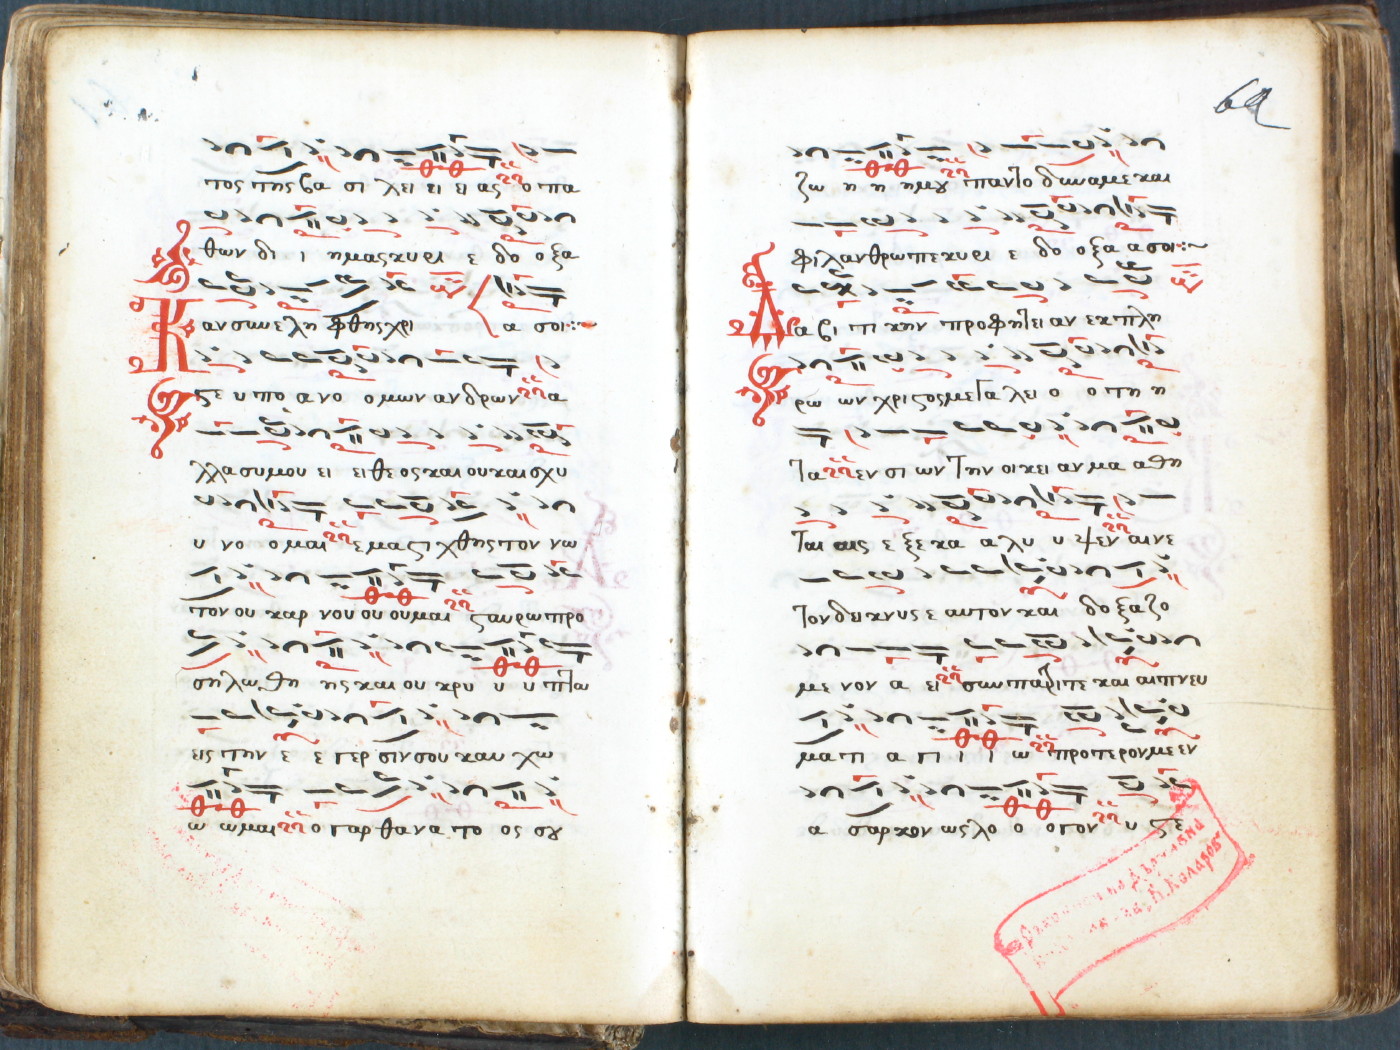 τος της βα σι λει ει ει ας ο πα
θων δι ι ημας κυρι ε δο ο ξα
Κ αν συνελη φθης χρι α σοι
ςε υπο ανο ομων ανδρων α
λλα συ μου ει ει θεος και ουκ αισχυ
υ νο ομαι εμαςιχθης τον νω
τον ου καρ νου ου ουμαι ςαυρω προ
σηλωθη ης και ου κρυ υ υ πτω
εις την ε ε γερσιν σου καυ χω
ω ωμαι ο γαρ θανα το ος σȣ
ζω η η η μȣ παντο δυναμε και
φιλανθρωπε κυρι ε δο ο ξα α σοι
Δ α βι τι κην προφητει αν εκ πλη
ρω ων χριςος μεγα λει ο ο τη η
τα εν σι ων την οικει αν μα αθη
ται αις ε ξε κα α λυ υ ψεν αι νε
τον δεικνυς ε αυτον και δοξαζο
με νον α ει συν πατρι τε και αι πνευ
μα τι α γι ι ι ω προτερον με εν
α σαρκον ως λο ο ο γον υ ςε